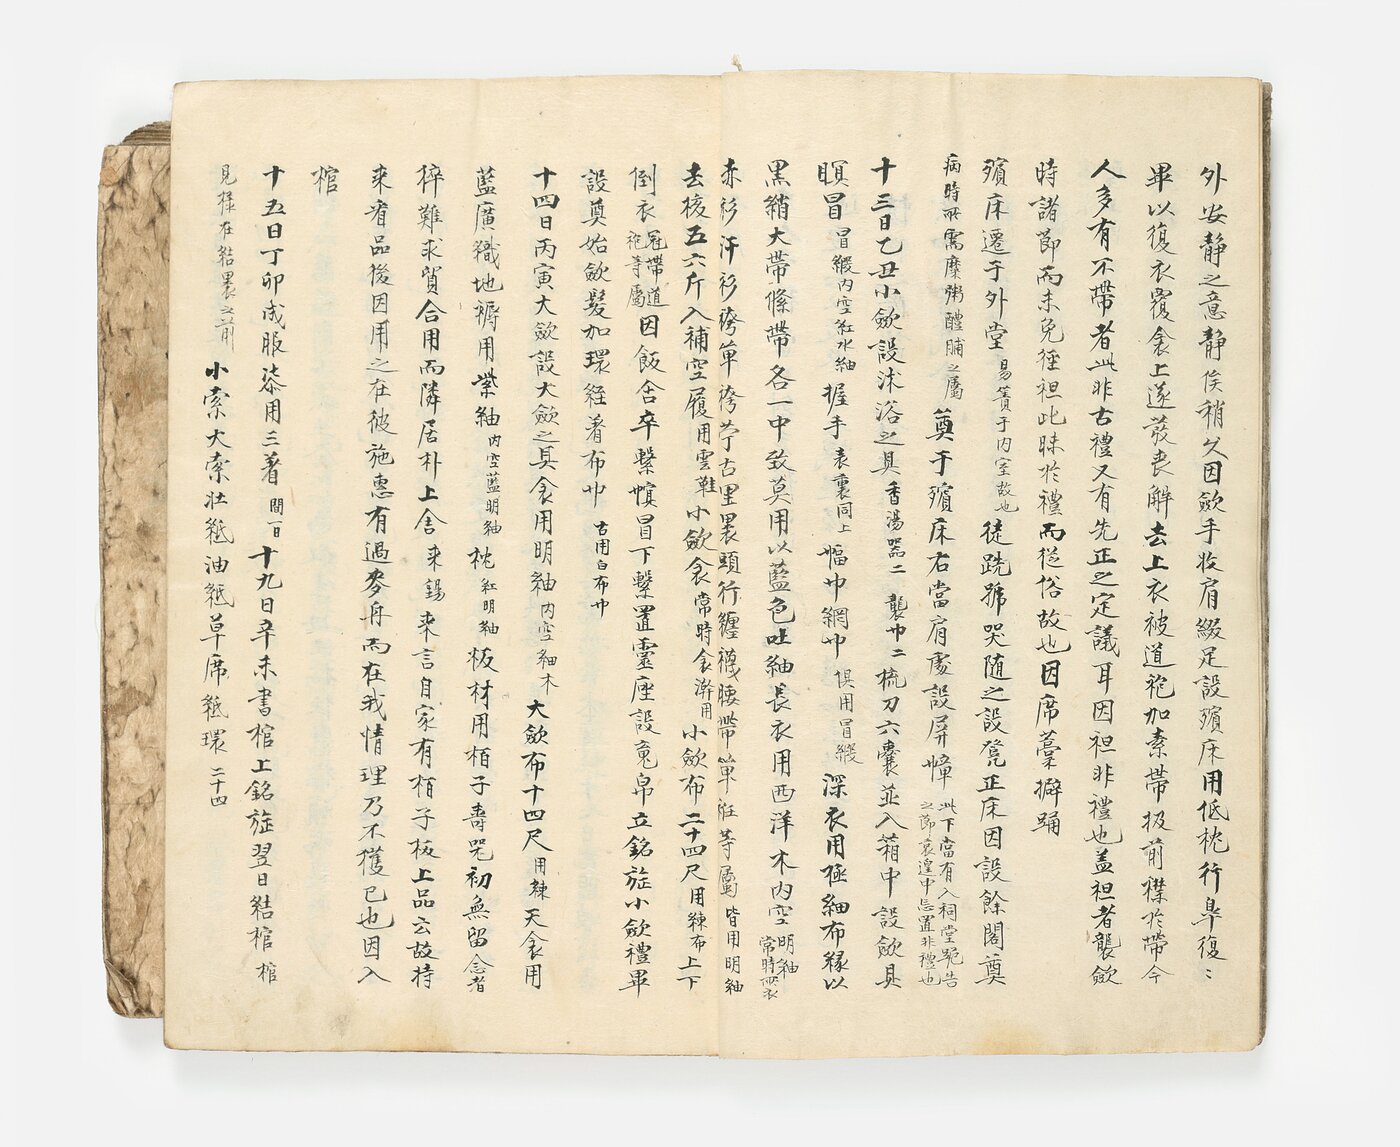 外安静之意静俟稍久因斂手收肩綴足設殯床用低枕行皐復〻
畢以復衣覆衾上遂發喪解去上衣被道袍加素帶扱前襟於帶今
人多有不帶者此非古禮又有先正之定議耳因袒非禮也盖袒者襲斂
時諸節而未免徑袒此昧於禮而從俗故也因席藁擗踊
殯床遷于外堂易簀于内室故也徒跣號哭随之設凳正床因設餘閣奠
病時所需糜粥醴脯之屬奠于殯床右當肩處設屏幛此下當有入祠堂跪告之節哀遑中忘置非禮也
十三日乙丑小斂設沐浴之具香湯器二襲巾二梳刀六囊並入箱中設斂具
瞑冒冒緞内空紅水紬握手表裏同上幅巾網巾俱用冒緞深衣用極細布緣以
黑綃大帶絛帶各一中致莫用以藍色吐紬長衣用西洋木内空明紬常時所衣
赤衫汗衫袴單袴苧古里裹頭行纏襪腰帶單袵等屬皆用明紬
去核五六斤入補空履用雲鞋小斂衾常時衾澣用小斂布二十四尺用練布上下
倒衣冠帶道袍等屬因飯含卒繫幎冒下繫置靈座設䰟帛立銘旌小斂禮畢
設奠始斂髮加環絰着布巾古用白布巾
十四日丙寅大斂設大斂之具衾用明紬内空細木大斂布十四尺用練天衾用
藍廣織地褥用紫紬内空藍明紬枕紅明紬板材用栢子壽器初無留念者
梓難求質合用而隣居朴上舍来錫来言自家有栢子板上品云故持
来看品後因用之在彼施惠有過麥舟而在我情理乃不獲已也因入
棺
十五日丁卯成服漆用三著間一日十九日辛未書棺上銘旌翌日結棺棺
見樣在結裹之前小索大索壮紙油紙草席紙環二十四